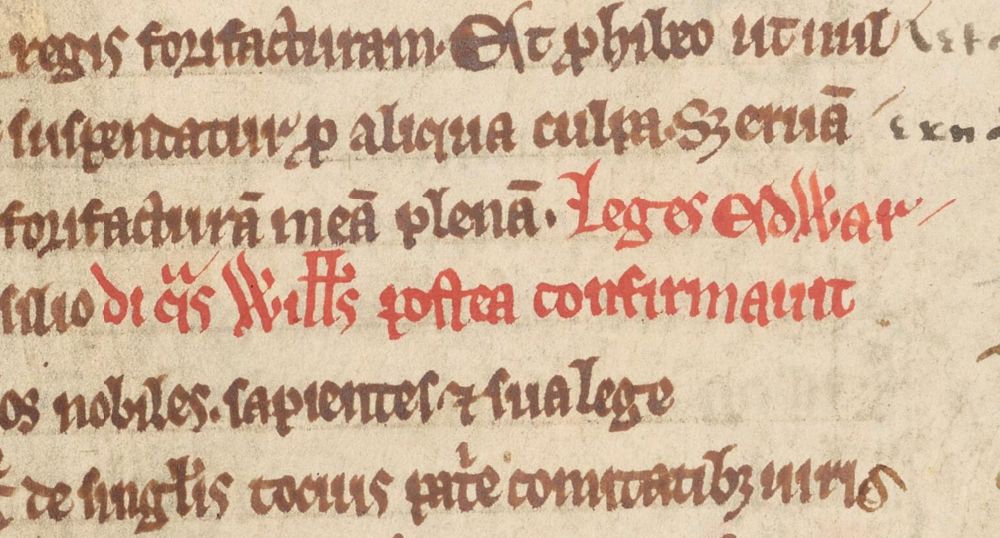 regis forisfacturam. Et ꝓhibeo ut null
suspendatur ꝑ aliqua culpa. Sꝫ eruā
forisfacturā meā plenā. Leges Edwar
silio di qͣs Willˀs postea confirmauit
os nobiles. sapientes ⁊ sua lege
de singlˀis tocius patͥe comitatibꝫ uiris